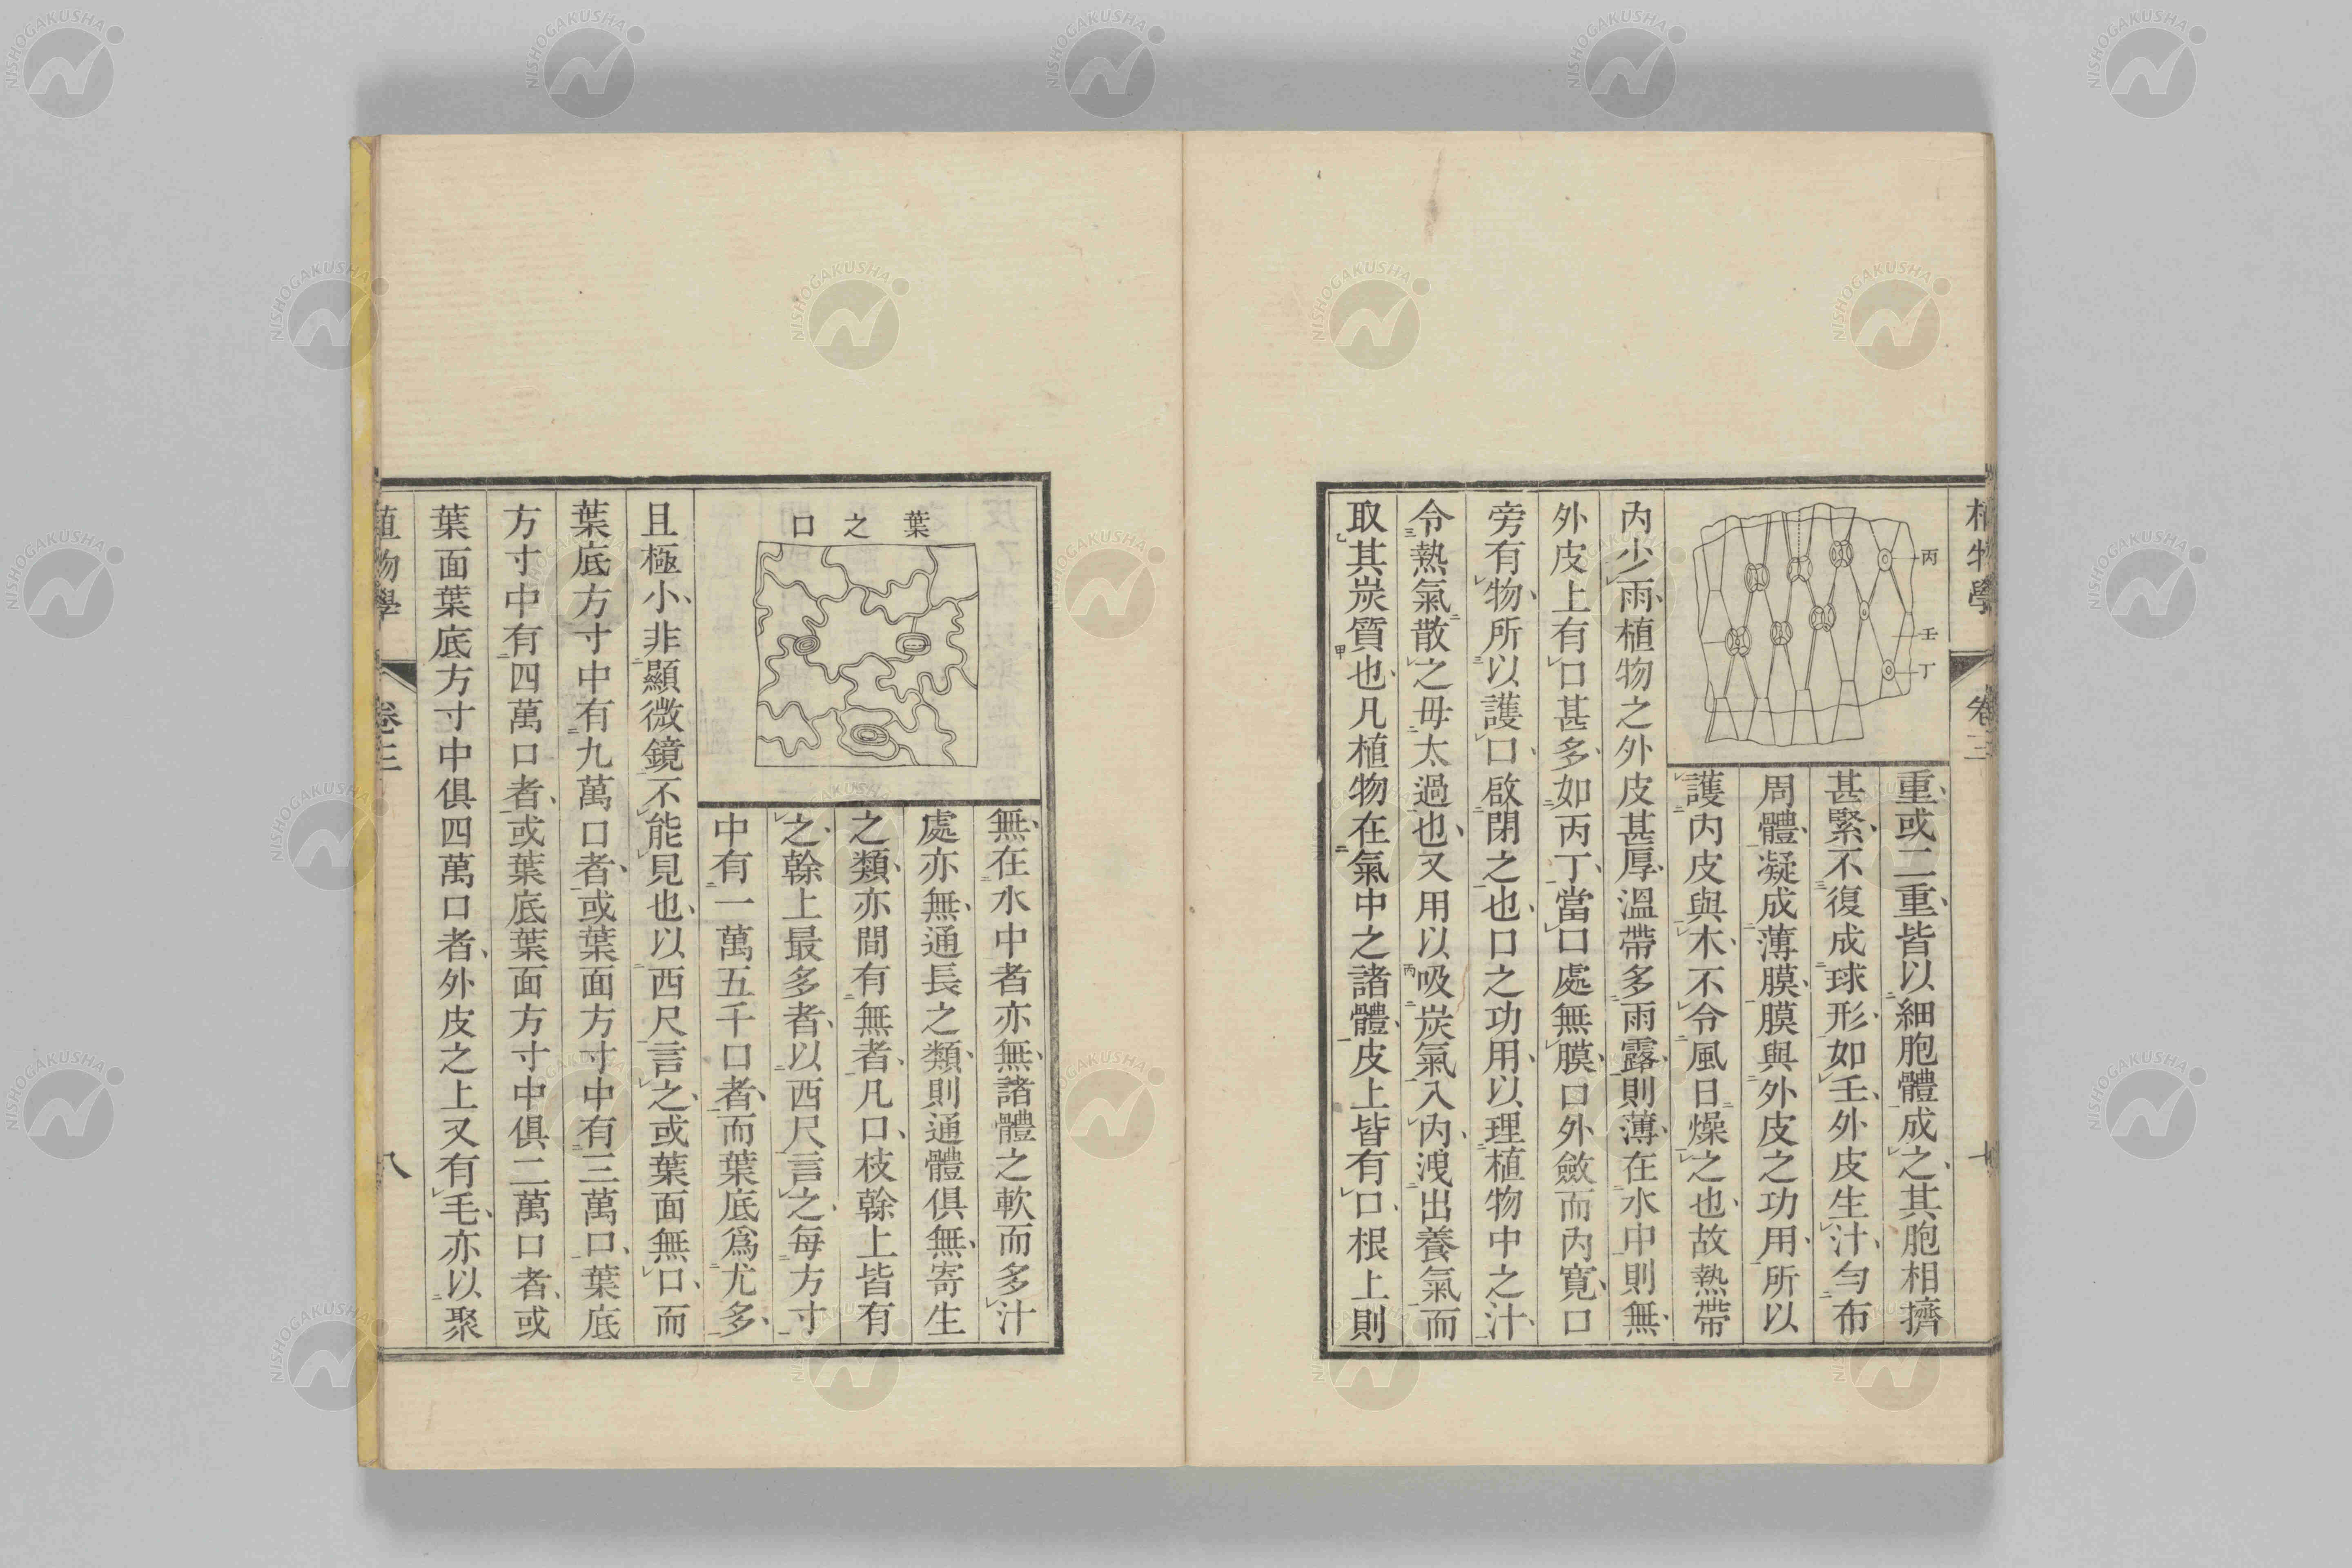 植物學 卷三
丙
壬
丁
重、或二重、皆以細胞體成之、其胞相擠
甚緊、不復成球形、如壬、外皮生汁、勻布
周體、凝成薄膜、膜與外皮之功用、所以
護內皮與木、不令風日燥之也、故熱帶
內少雨、植物之外皮甚厚、溫帶多雨露、則薄、在水中則無、
外皮上有口甚多、如丙丁、當口處無膜、口外斂而內寬、口
旁有物、所以護口、啟閉之也、口之功用、以理植物中之汁、
令熱氣散之毋太過也、又用以吸炭氣入內、洩出養氣而
取其炭質也、凡植物在氣中之諸體、皮上皆有口、根上則
葉之口
無、在水中者亦無、諸體之軟而多汁
處亦無、通長之類、則通體俱無、寄生
之類、亦間有無者、凡口、枝榦上皆有
之、榦上最多者、以西尺言之、每方寸
中有一萬五千口者、而葉底爲尤多、
且極小、非顯微鏡不能見也、以西尺言之、或葉面無口、而
葉底方寸中有九萬口者、或葉面方寸中有三萬口、葉底
方寸中有四萬口者、或葉底葉面方寸中俱二萬口者、或
葉面葉底方寸中俱四萬口者、外皮之上又有毛、亦以聚
植物學 卷三 八
NISHOGAKUSHA